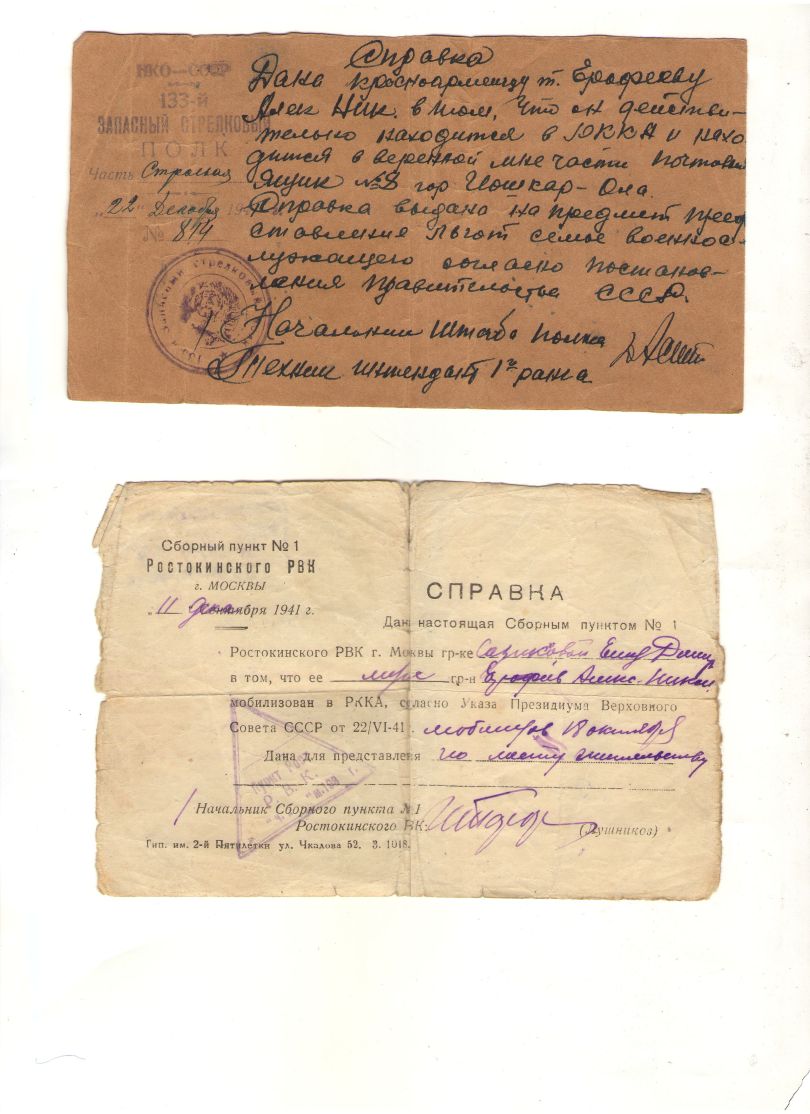 НКО—СССР
133-й
ЗАПАСНЫЙ СТРЕЛКОВЫЙ
ПОЛК
Часть Строевая
"22" Декабря 194
№ 874
Справка
Дана красноармейцу т. Ерофееву
Алек Ник. в том, что он действи-
тельно находится в РККА и нахо-
дится в вверенной мне части почтовый
ящик №8 гор Йошкар-Ола.
Справка выдано на предмет предо
ставления льгот семье военнос-
лужащего согласно постанов-
ления правительства СССР.
Начальник штаба полка
Техник интендант 1го ранга
Сборный пункт № 1
Ростокинского РВК
г. МОСКВЫ
„11 дека 1941 г.
СПРАВКА
Дана настоящая Сборным пунктом № 1
Ростокинского РВК г. Москвы гр-ке
в том, что ее муж гр-н Ерофеев Алекс. Никол.
мобилизован в РККА, согласно Указа Президиума Верховного
Совета СССР от 22/VI-41 г. мобилизов 18 октября
Дана для представления по месту жительству
Начальник Сборного пункта №1
Ростокинского РВК:
(Лушников)
Тип. им. 2-й Пятилетки ул. Чкалова 52. З. 1918.